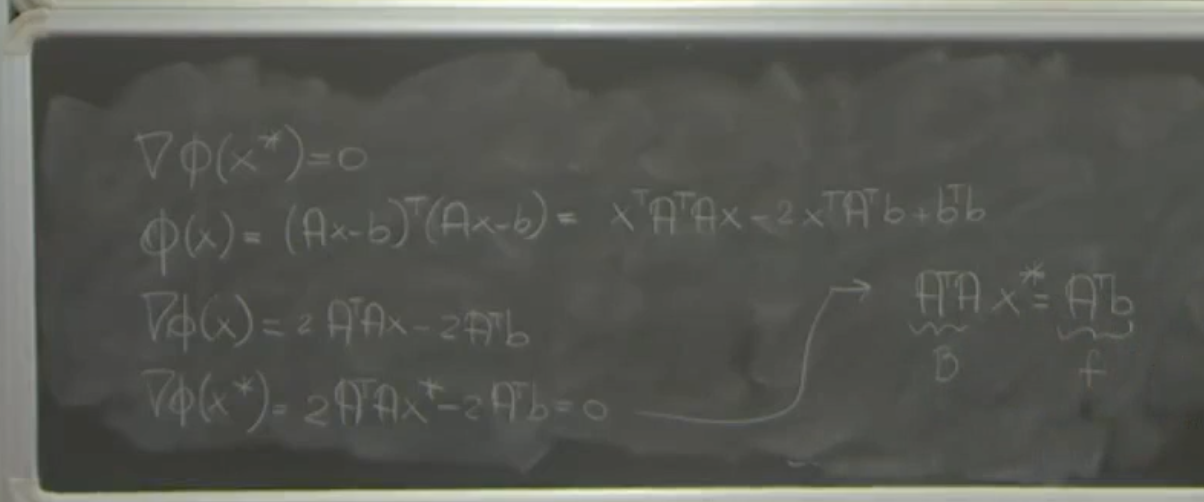 ∇ϕ(x*)=0
ϕ(x) = (Ax-b)ᵀ(Ax-b) = xᵀAᵀAx - 2xᵀAᵀb + bᵀb
∇ϕ(x) = 2AᵀAx - 2Aᵀb
∇ϕ(x*) = 2AᵀAx* - 2Aᵀb = 0 → AᵀAx* = Aᵀb
B f